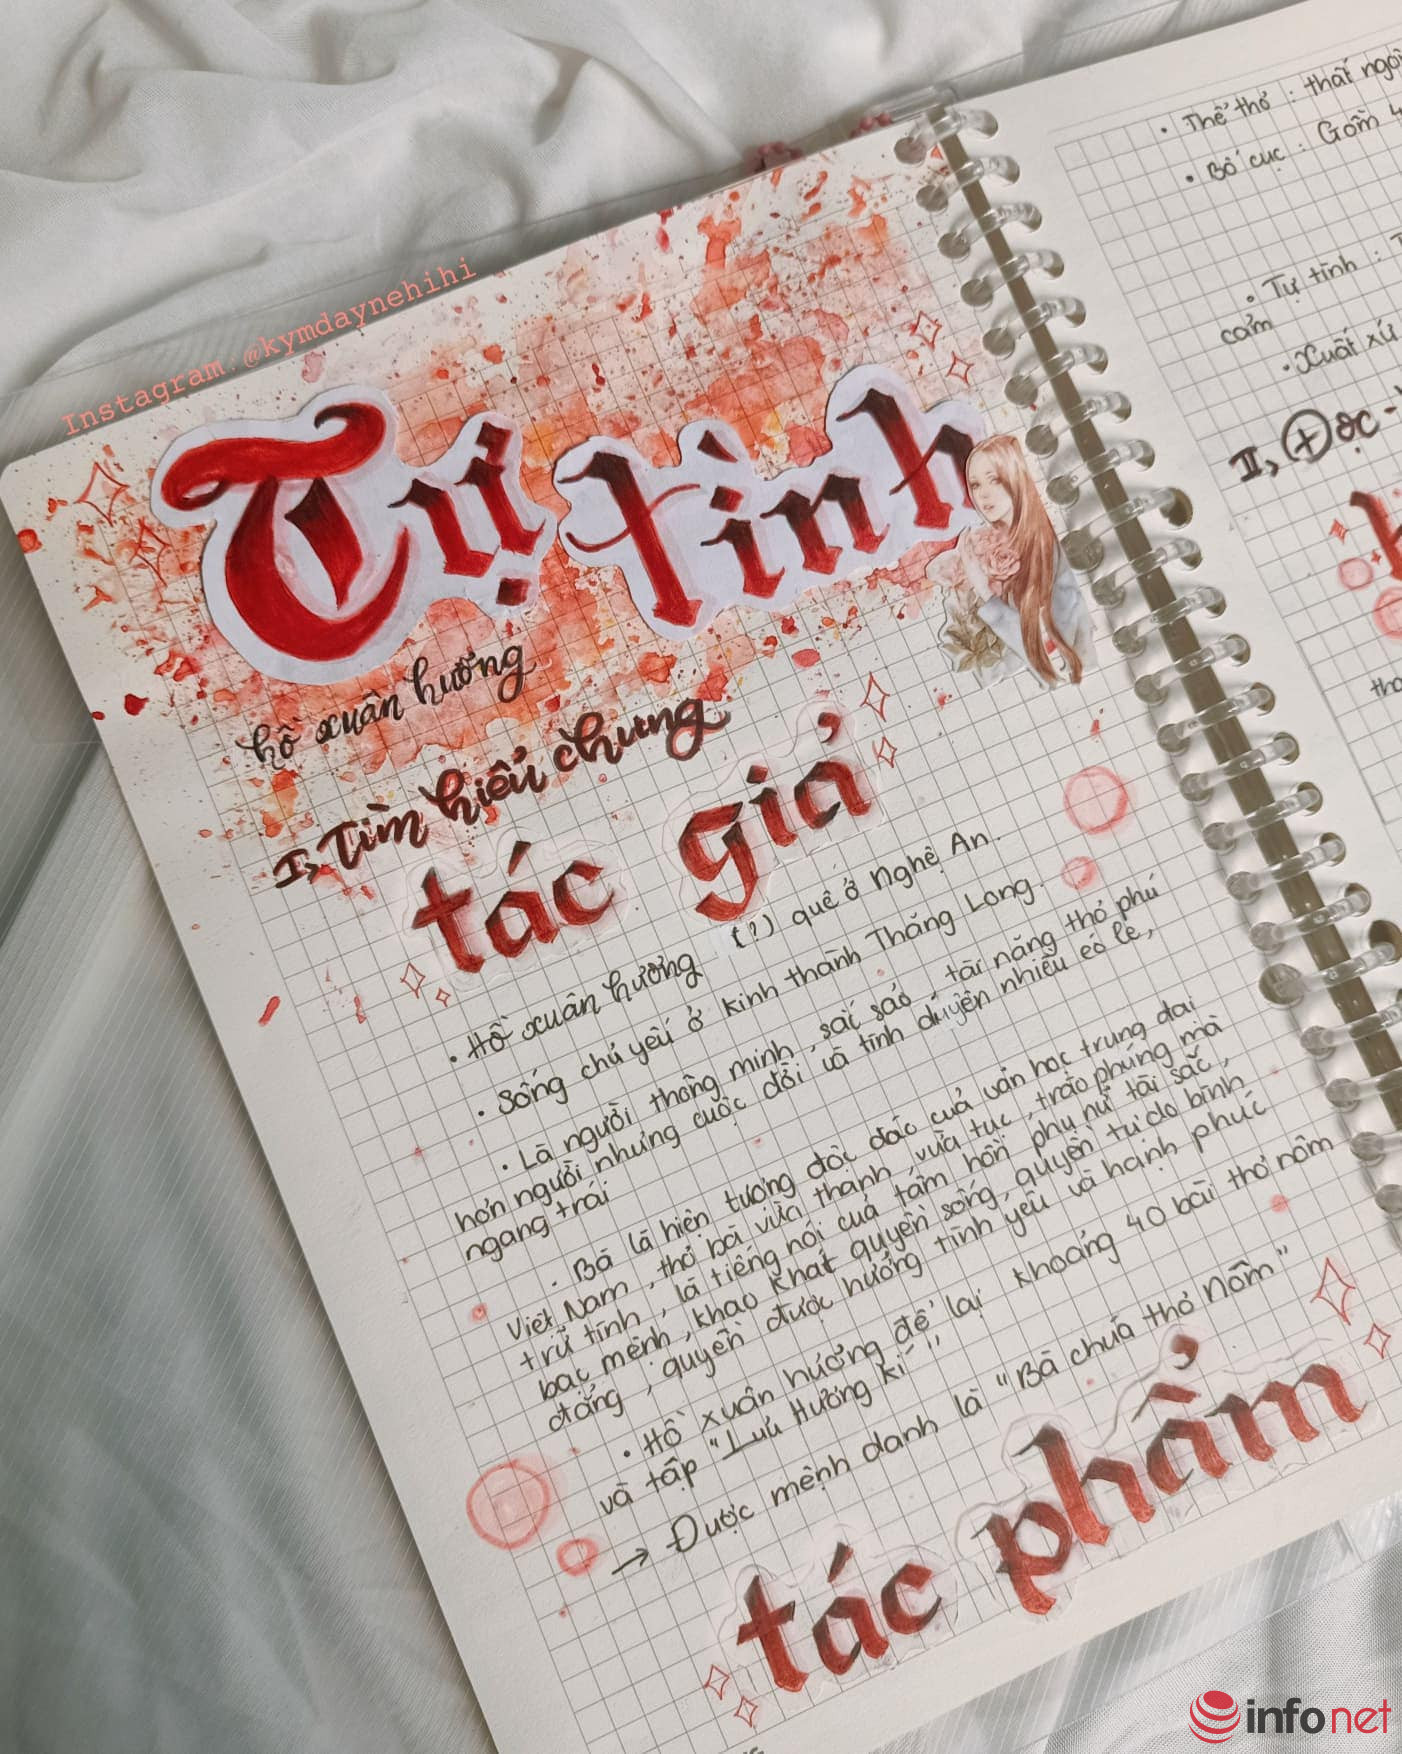 Instagram: @kymdaynehihi
Tự tình
hồ xuân hương
I, Tìm hiểu chung
tác giả
• Hồ xuân hương (?) quê ở Nghệ An.
• Sống chủ yếu ở kinh thành Thăng Long.
• Là người thông minh, sắc sảo, tài năng thơ phú
hơn người nhưng cuộc đời và tình duyên nhiều éo le,
ngang trái
• Bà là hiện tượng độc đáo của văn học trung đại
Việt Nam, thơ bà vừa thanh, vừa tục, trào phúng mà
trữ tình, là tiếng nói của tâm hồn phụ nữ tài sắc,
bạc mệnh, khao khát quyền sống, quyền tự do bình
đẳng, quyền được hưởng tình yêu và hạnh phúc
• Hồ xuân hương để lại khoảng 40 bài thơ nôm
và tập "Lưu Hương kí",
→ Được mệnh danh là "Bà chúa thơ nôm"
tác phẩm
• Thể thơ: thất ngôn
• Bố cục: Gồm 4
• Tự tình:
cảm
• Xuất xứ
II, Đọc -
infonet